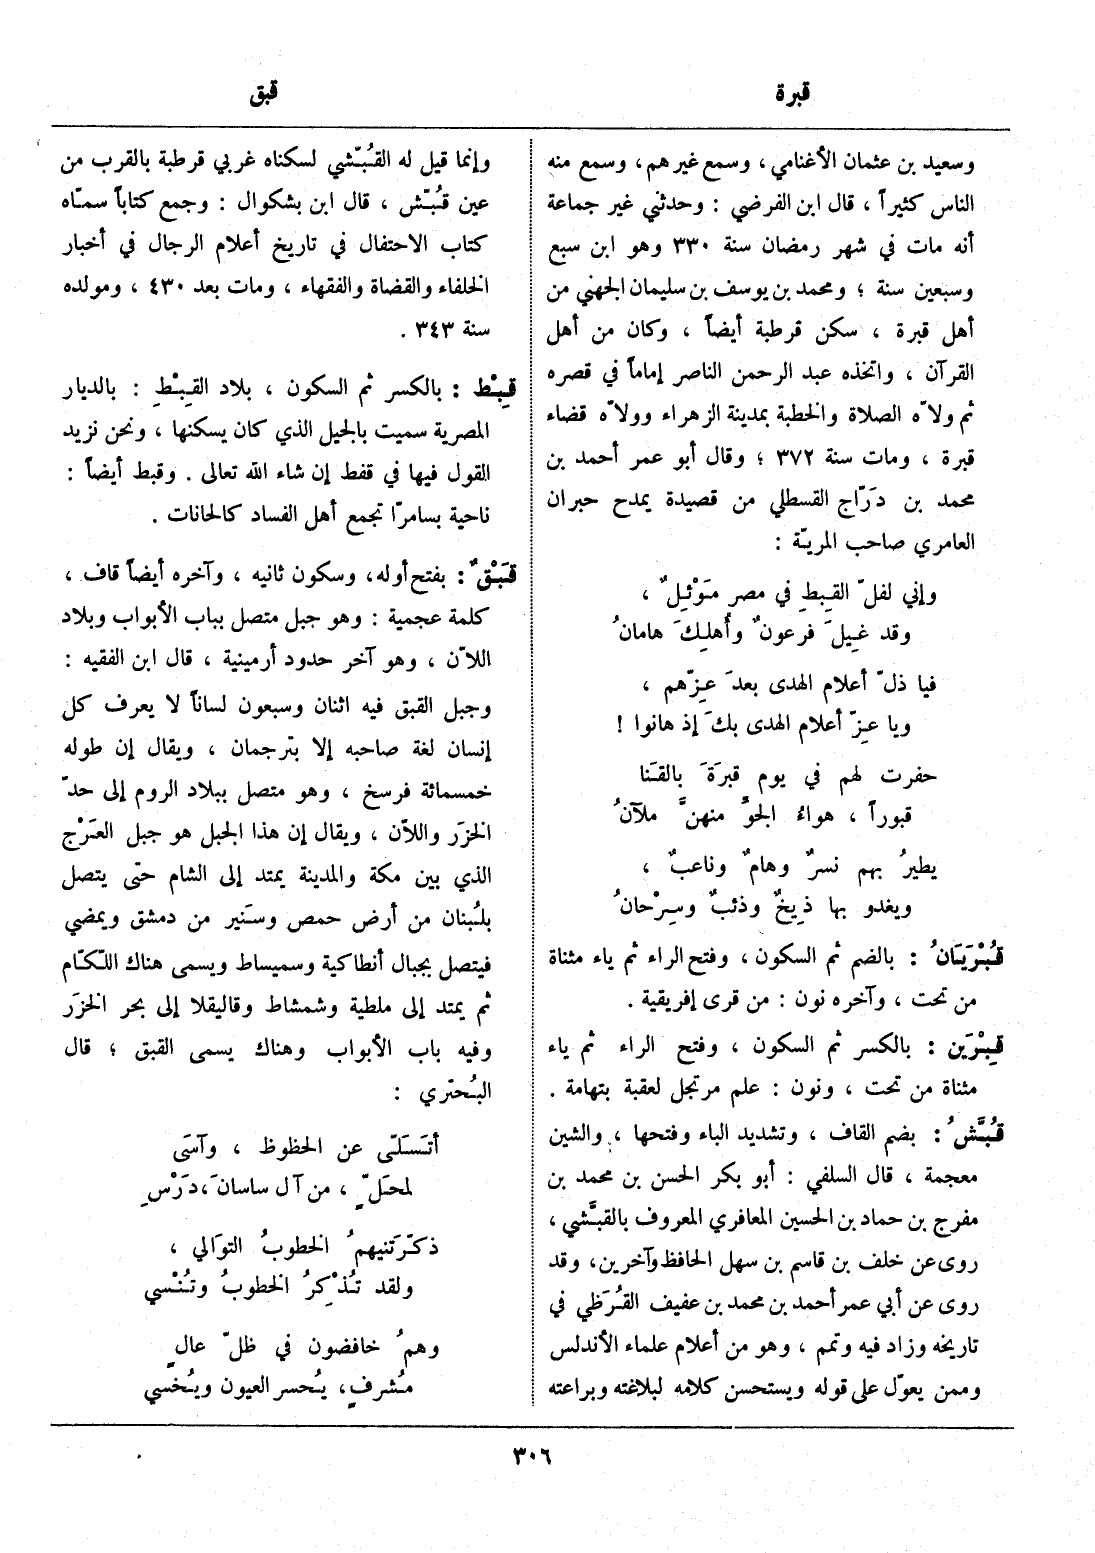 قبرة
قبق
وسعيد بن عثمان الأغنامي ، وسمع غيرهم، وسمع منه
الناس كثيراً ، قال ابن الفرضي : وحدثني غير جماعة
أنه مات في شهر رمضان سنة ٣٣٠ وهو ابن سبع
وسبعين سنة ؛ ومحمد بن يوسف بن سليمان الجهني من
أهل قبرة ، سكن قرطبة أيضاً ، وكان من أهل
القرآن ، واتخذه عبد الرحمن الناصر إماماً في قصره
ثم ولاّه الصلاة والخطبة بمدينة الزهراء وولاّه قضاء
قبرة ، ومات سنة ٣٧٢ ؛ وقال أبو عمر أحمد بن
محمد بن دَرّاج القسطلي من قصيدة يمدح حبران
العامري صاحب المريّة :
وإني لفلّ القِبطِ في مصر مَوْئِلٌ ،
وقد غِيلَ فرعونٌ وأُهلِكَ هامانُ
فيا ذلّ أعلام الهدى بعدَ عِزّهم ،
ويا عِزّ أعلام الهدى بكَ إذ هانوا !
حفرت لهم في يوم قبرَةَ بالقَنا
قبوراً ، هواءُ الجوِّ منهنَّ ملآنُ
يطيرُ بهم نسرٌ وهامٌ وناعبٌ ،
ويغدو بها ذِيخٌ وذئبٌ وسِرْحانُ
قُبْرَيَانُ : بالضم ثم السكون ، وفتح الراء ثم ياء مثناة
من تحت ، وآخره نون : من قرى إفريقية .
قِبْرَين : بالكسر ثم السكون ، وفتح الراء ثم ياء
مثناة من تحت ، ونون : علم مرتجل لعقبة بتهامة .
قُبَّشُ : بضم القاف ، وتشديد الباء وفتحها ، والشين
معجمة ، قال السلفي : أبو بكر الحسن بن محمد بن
مفرج بن حماد بن الحسين المعافري المعروف بالقبَّشي ،
روى عن خلف بن قاسم بن سهل الحافظ وآخرين، وقد
روى عن أبي عمر أحمد بن محمد بن عفيف القُرَظي في
تاريخه وزاد فيه وتمم ، وهو من أعلام علماء الأندلس
وممن يعوّل على قوله ويستحسن كلامه لبلاغته وبراعته
وإنما قيل له القُبّشي لسكناه غربي قرطبة بالقرب من
عين قُبّش ، قال ابن بشكوال : وجمع كتاباً سمّاه
كتاب الاحتفال في تاريخ أعلام الرجال في أخبار
الخلفاء والقضاة والفقهاء ، ومات بعد ٤٣٠ ، ومولده
سنة ٣٤٣ .
قِبْط : بالكسر ثم السكون ، بلاد القِبْطِ : بالديار
المصرية سميت بالجيل الذي كان يسكنها ، ونحن نزيد
القول فيها في قفط إن شاء الله تعالى . وقبط أيضاً :
ناحية بسامرّا تجمع أهل الفساد كالحانات .
قَبْقٌ : بفتح أوله، وسكون ثانيه ، وآخره أيضاً قاف ،
كلمة عجمية : وهو جبل متصل بباب الأبواب وبلاد
اللاّن ، وهو آخر حدود أرمينية ، قال ابن الفقيه :
وجبل القبق فيه اثنان وسبعون لساناً لا يعرف كل
إنسان لغة صاحبه إلا بتَرجمان ، ويقال إن طوله
خمسمائة فرسخ ، وهو متصل ببلاد الروم إلى حدّ
الخزَر واللاّن ، ويقال إن هذا الجبل هو جبل العَرْج
الذي بين مكة والمدينة يمتد إلى الشام حتى يتصل
بلُبنان من أرض حمص وسَنير من دمشق ويمضي
فيتصل بجبال أنطاكية وسميساط ويسمى هناك اللُكّام
ثم يمتد إلى ملطية وشمشاط وقاليقلا إلى بحر الخزَر
وفيه باب الأبواب وهناك يسمى القبق ؛ قال
البُحتري :
أتَسَلّى عن الحظوظ ، وآسَى
لمحَلٍّ ، من آل ساسانَ، دَرْسِ
ذكّرَتنيهمُ الخطوبُ التوَالي ،
ولقد تُذْكِرُ الخطوبُ وتُنْسي
وهمُ خافضون في ظلّ عالٍ
مُشرفٍ، يُحسر العيون ويُخسي
٣٠٦